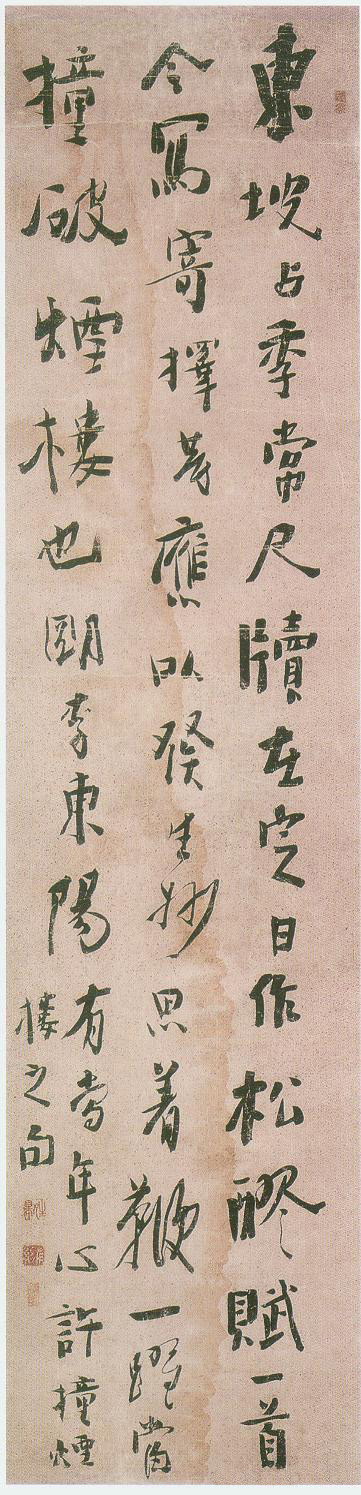 東坡与季常尺牘在定日作松醪賦一首
今寫寄擇等應以發生妙思着鞭一躍當
撞破煙樓也李東陽有當年心許撞煙
樓之句